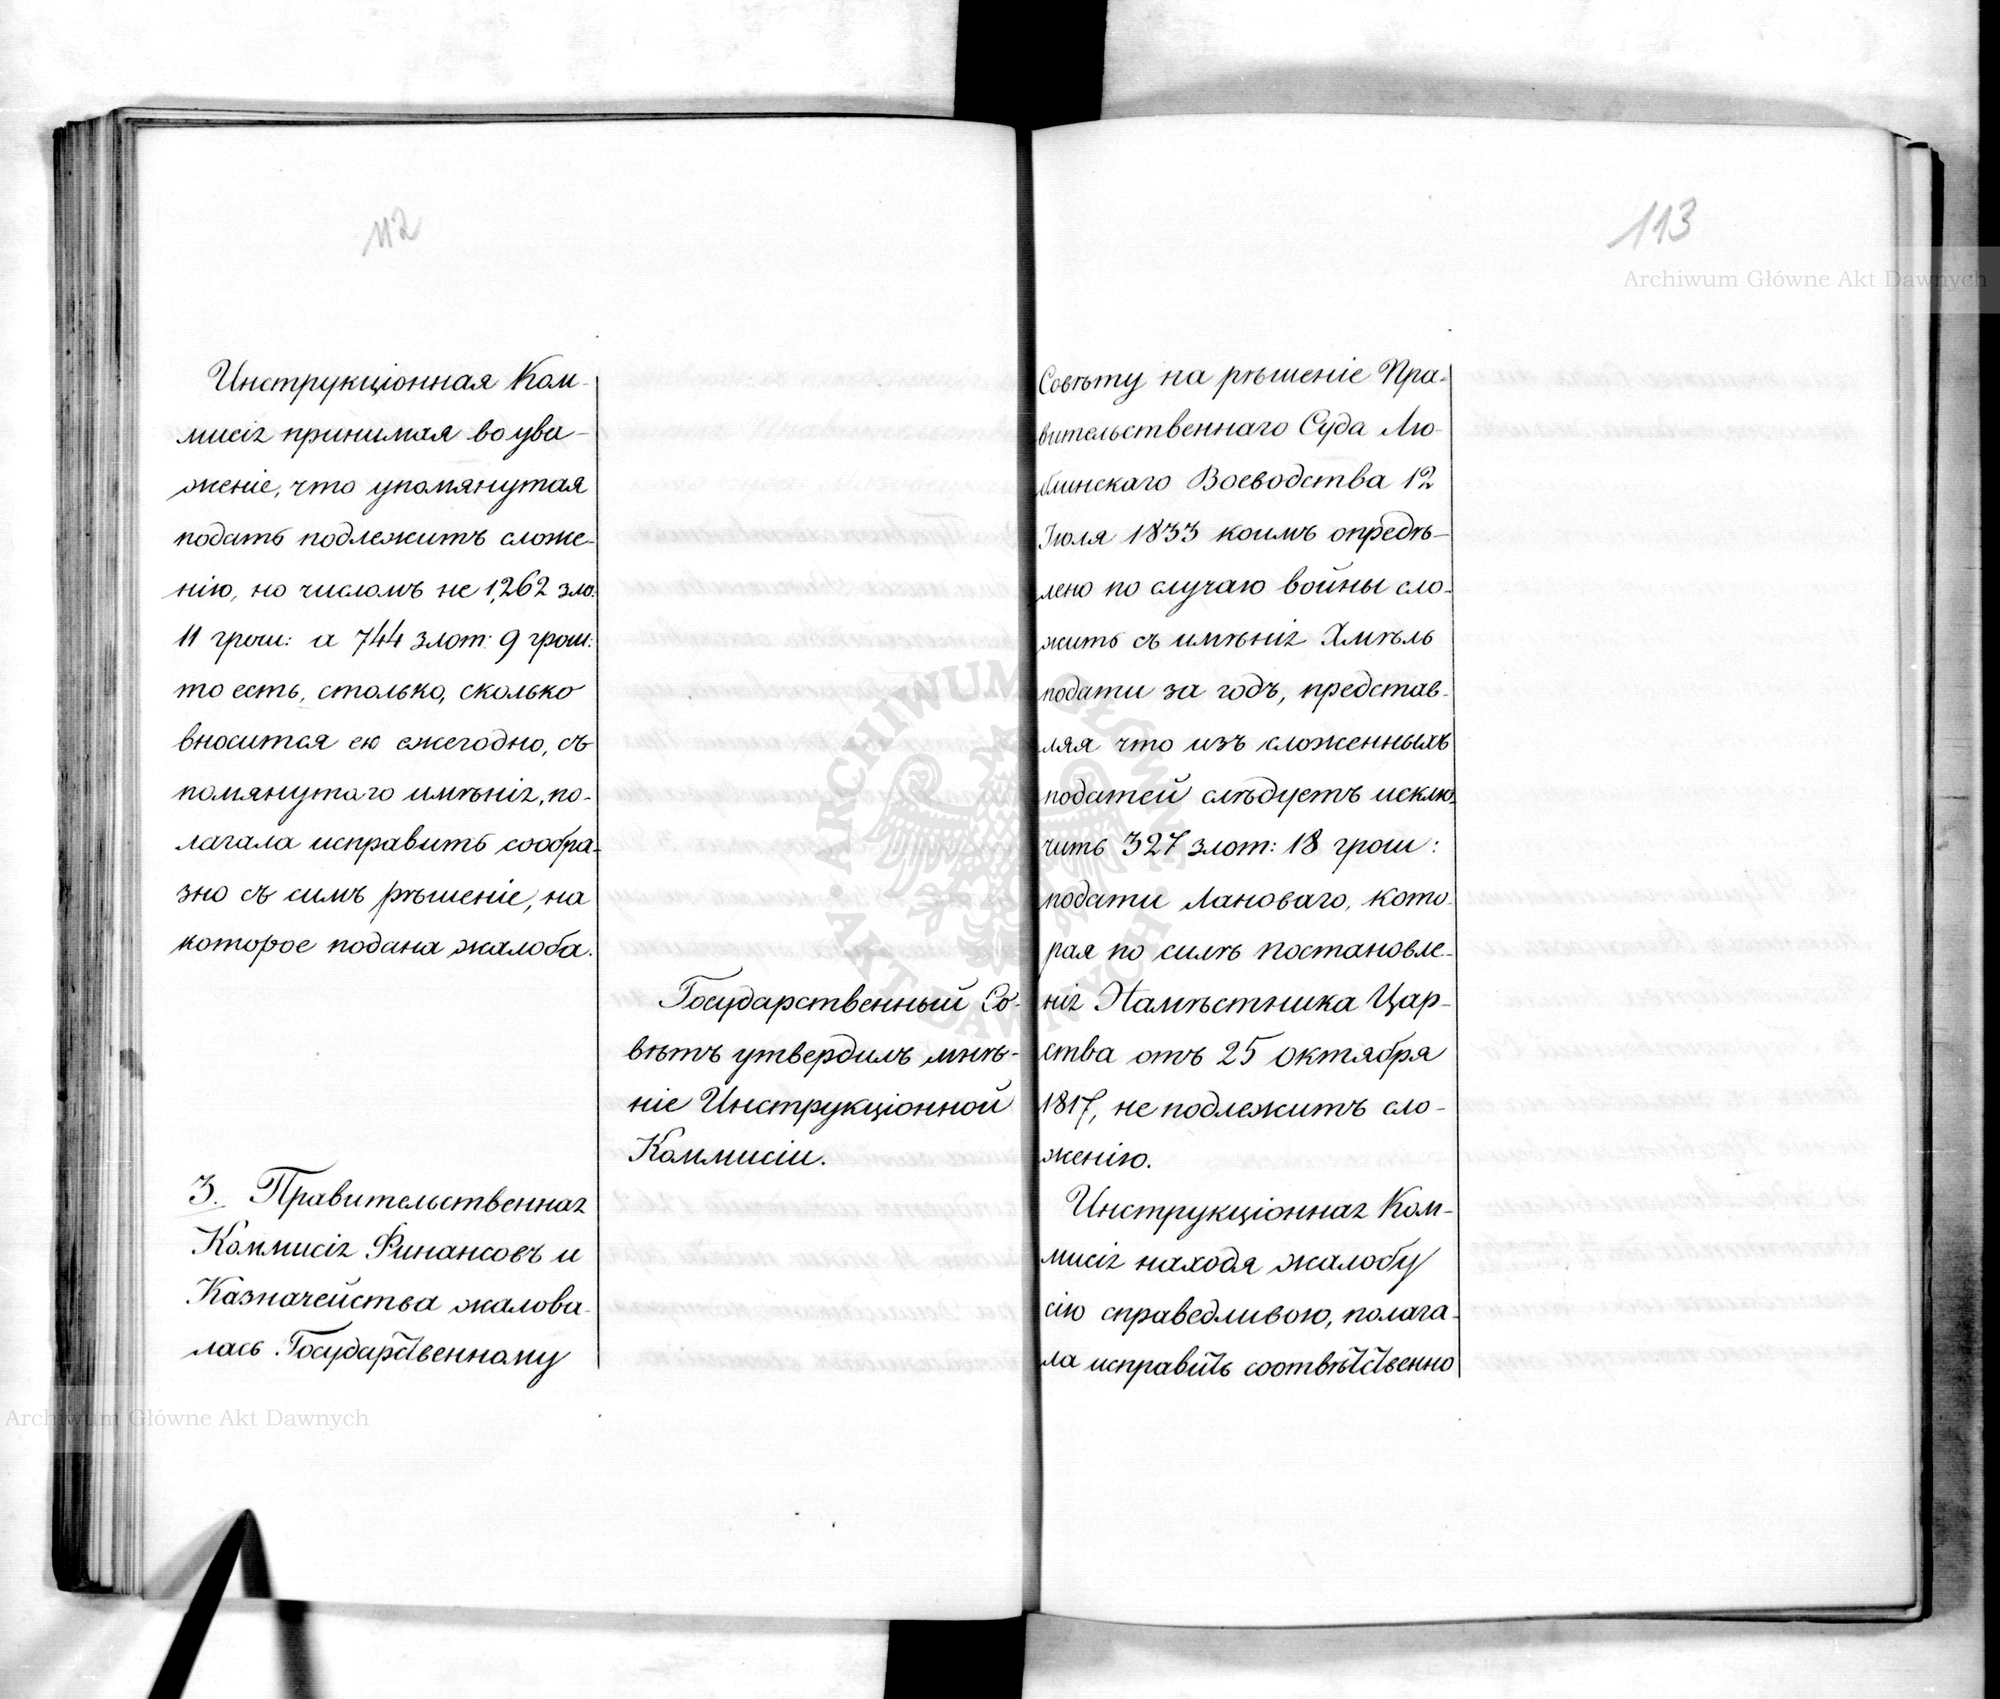 112
Инструкціонная Ком-
мисія принимая во ува-
женіе, что упомянутая
подать подлежитъ сложе-
нію, но числомъ не 1,262 зло:
11 грош: а 744 злот: 9 грош:
то есть, столько, сколько
вносится ею ежегодно, съ
помянутаго имѣнія, по-
лагала исправить сообра-
зно съ симъ рѣшеніе, на
которое подана жалоба.
Государственный Со-
вѣтъ утвердилъ мнѣ-
ніе Инструкціонной
Коммисіи.
3. Правительственная
Коммисія Финансовъ и
Казначейства жалова-
лась Государственному
113
Совѣту на рѣшеніе Пра-
вительственнаго Суда Лю-
блинскаго Воеводства 12
Іюля 1833 коимъ опредѣ-
лено по случаю войны сло-
жить съ имѣнія Хмѣль
подати за годъ, представ-
ляя что изъ сложенныхъ
податей слѣдуетъ исклю-
чить 327 злот: 18 грош:
подати Лановаго, кото-
рая по силѣ постановле-
нія Намѣстника Цар-
ства отъ 25 октября
1817, не подлежитъ сло-
женію.
Инструкціонная Ком-
мисія находя жалобу
сію справедливою, полага-
ла исправить соотвѣтственно
Archiwum Główne Akt Dawnych
Archiwum Główne Akt Dawnych
ARCHIWUM GŁÓWNE AKT DAWNYCH